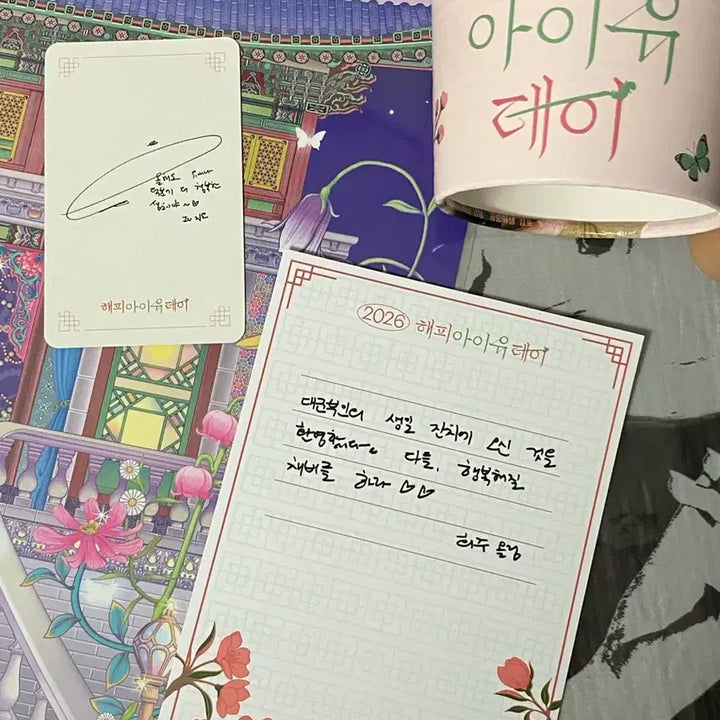 아이유
데이
올해도
더 행복한
해피아이유데이
2026 해피아이유데이
대군부인의 생일 잔치에 오신 것을
환영합니다. 다들, 행복해질
채비를 하라 ♡♡
희주 올림